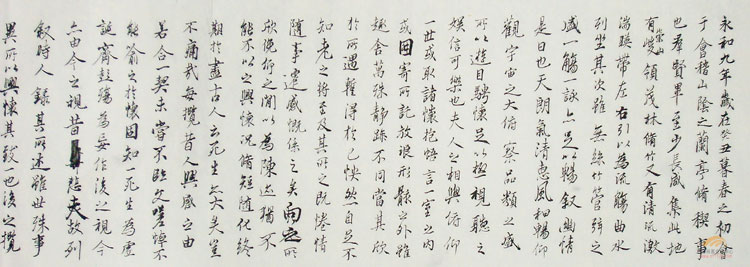 永和九年歲在癸丑暮春之初會
于會稽山陰之蘭亭脩稧事
也羣賢畢至少長咸集此地
有崇山峻領茂林脩竹又有清流激
湍暎帶左右引以為流觴曲水
列坐其次雖無絲竹管弦之
盛一觴一詠亦足以暢叙幽情
是日也天朗氣清惠風和暢仰
觀宇宙之大俯察品類之盛
所以遊目騁懷足以極視聽之
娛信可樂也夫人之相與俯仰
一世或取諸懷抱悟言一室之內
或因寄所託放浪形骸之外雖
趣舍萬殊靜躁不同當其欣
於所遇蹔得於己怏然自足不
知老之將至及其所之既惓情
隨事遷感慨係之矣向之所
欣俛仰之閒以為陳迹猶不
能不以之興懷況脩短隨化終
期於盡古人云死生亦大矣豈
不痛哉每攬昔人興感之由
若合一契未嘗不臨文嗟悼不
能喻之於懷固知一死生為虛
誕齊彭殤為妄作後之視今
亦由今之視昔悲夫故列
叙時人錄其所述雖世殊事
異所以興懷其致一也後之攬